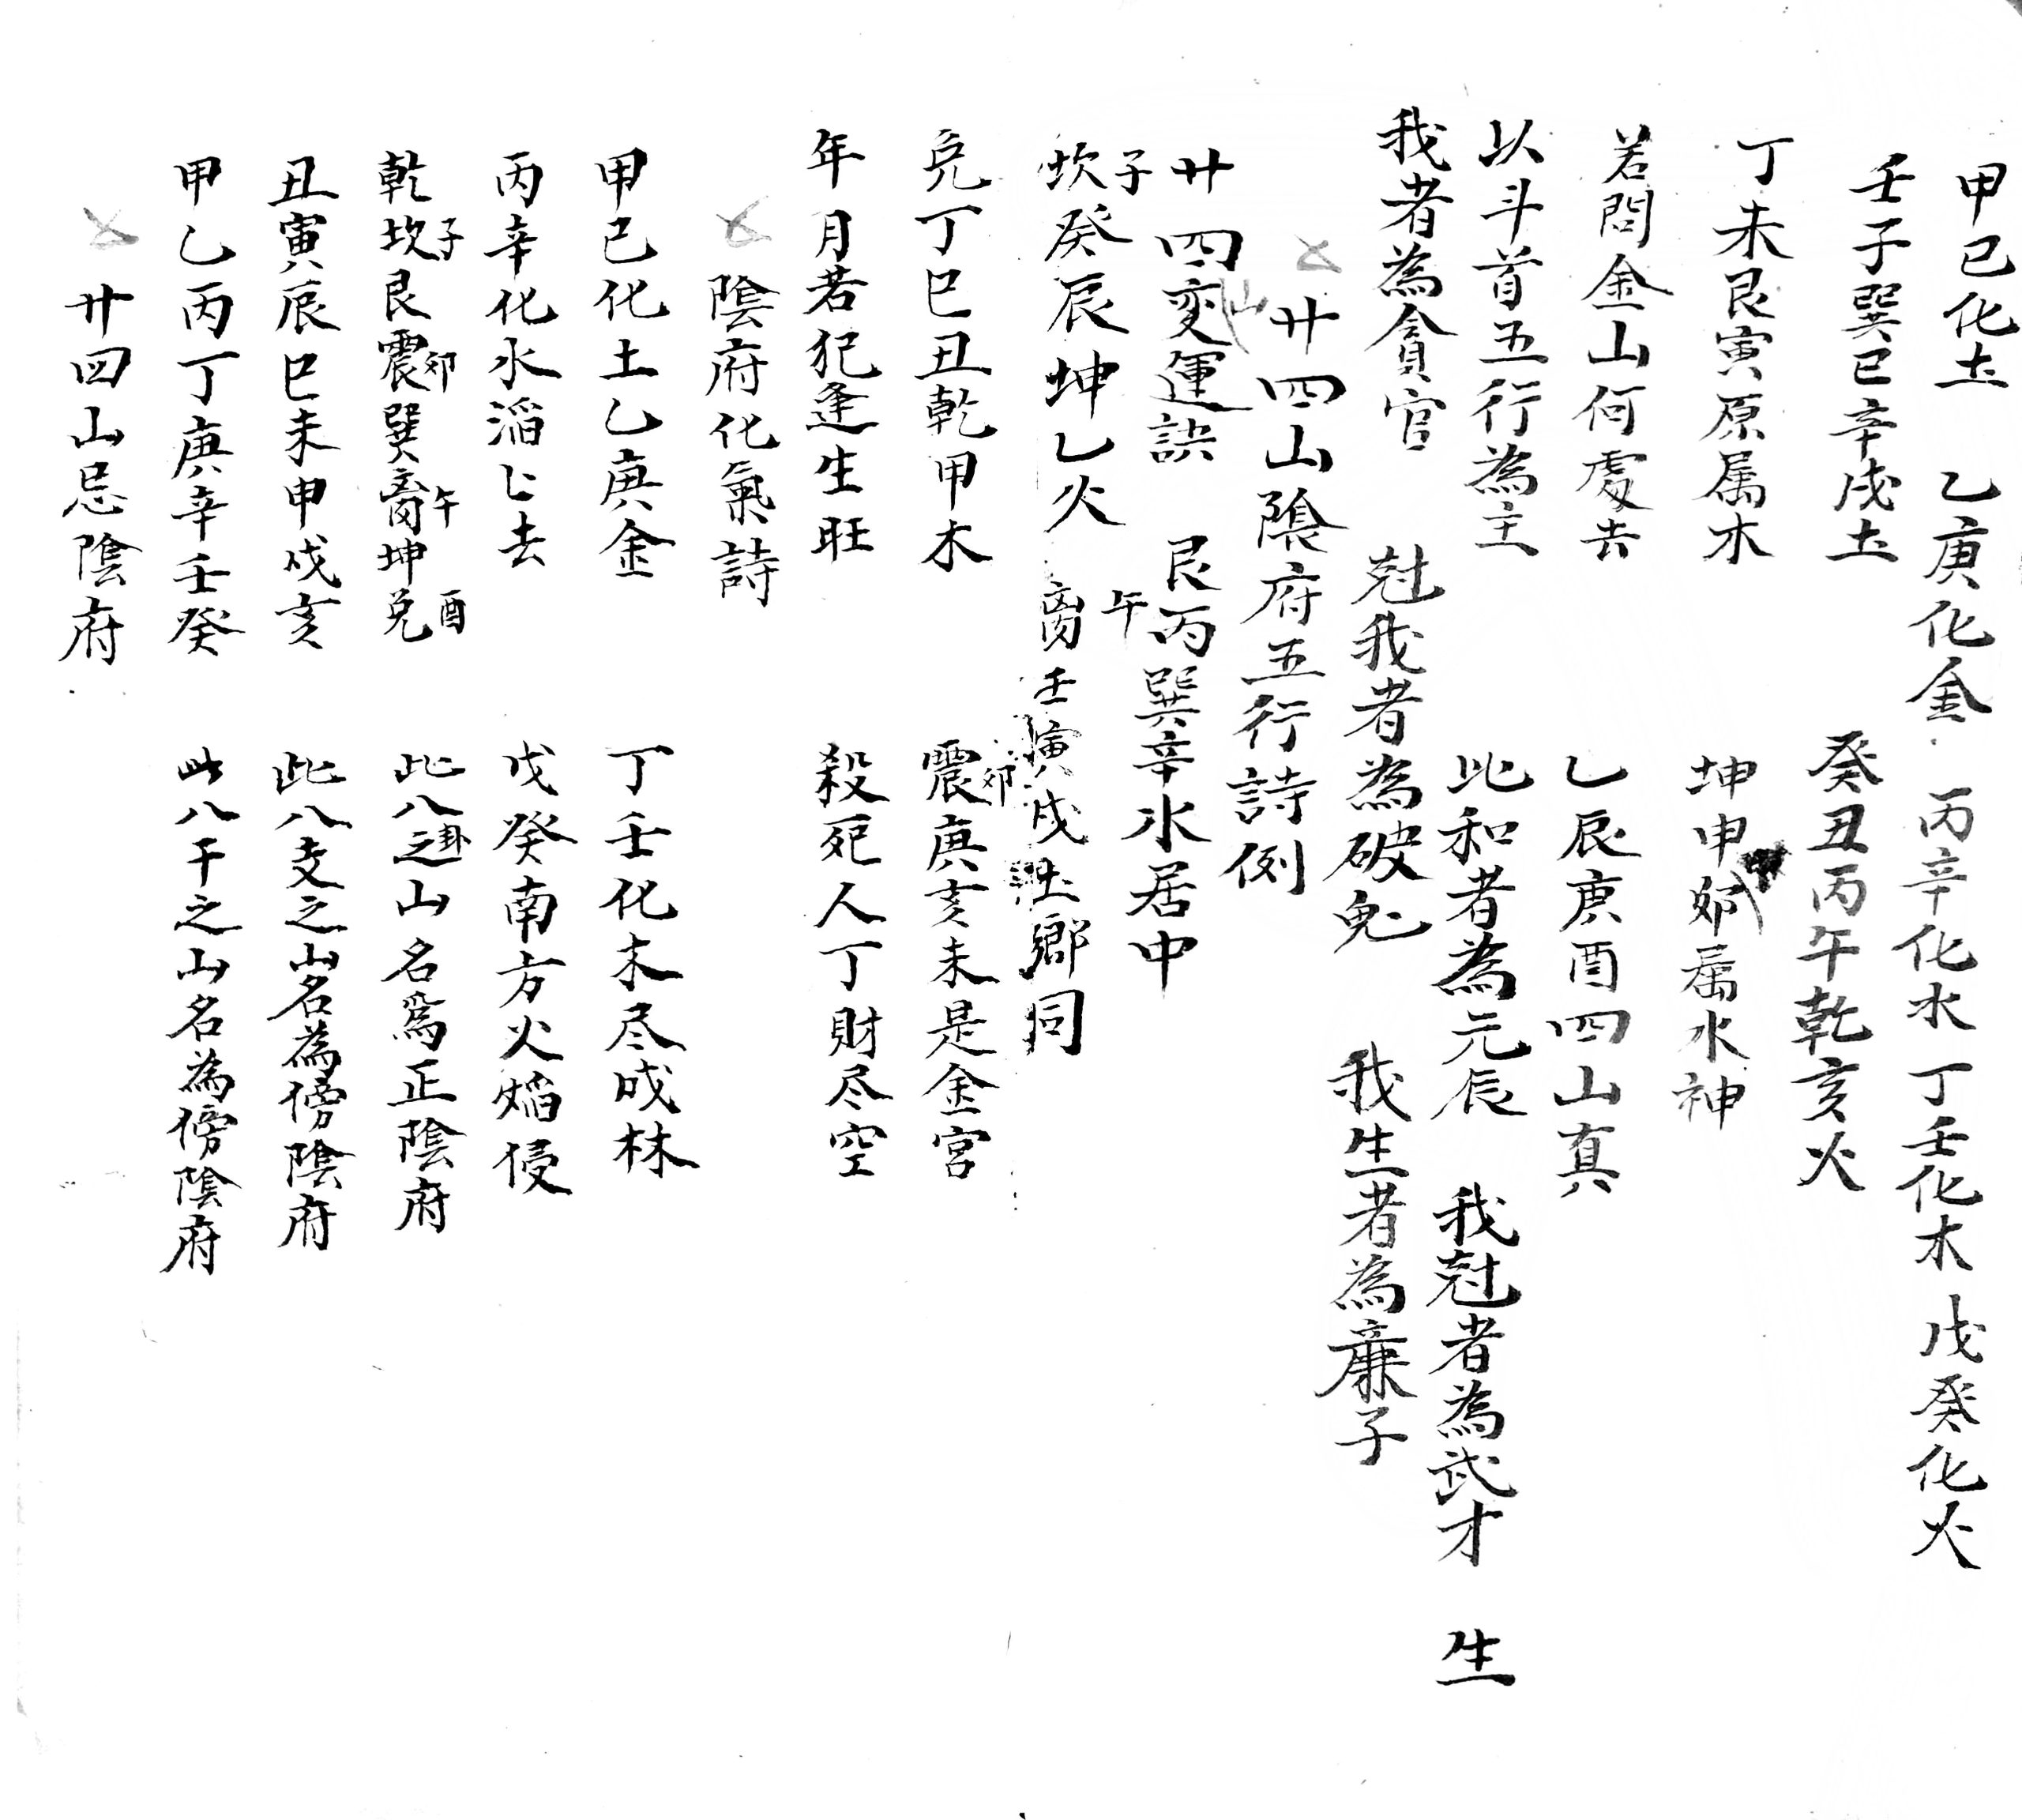 甲己化土 乙庚化金 丙辛化水 丁壬化木 戊癸化火
壬子巽巳辛戌土 癸丑丙午乾亥火
丁未艮寅原属木 坤申卯属水神
若問金山何處去 乙辰庚酉四山真
以斗首五行為主 比和者為元辰 我尅者為武才 生
我者為貪官 尅我者為破鬼 我生者為廉子
廿四山隂府五行詩例
廿四山变運訣 艮丙巽辛水居中
坎子癸辰坤乙火 离午壬寅戌土鄉同
兑丁巳丑乾甲木 震卯庚亥未是金宮
年月若犯逢生旺 殺死人丁財尽空
陰府化氣詩
甲己化土乙庚金 丁壬化木尽成林
丙辛化水滔匕去 戊癸南方火焰侵
乾坎子艮震卯巽离午坤兑酉 此八卦之山名為正陰府
丑寅辰巳未申戌亥 此八支之山名為傍陰府
甲乙丙丁庚辛壬癸 此八干之山名為傍陰府
廿四山忌陰府